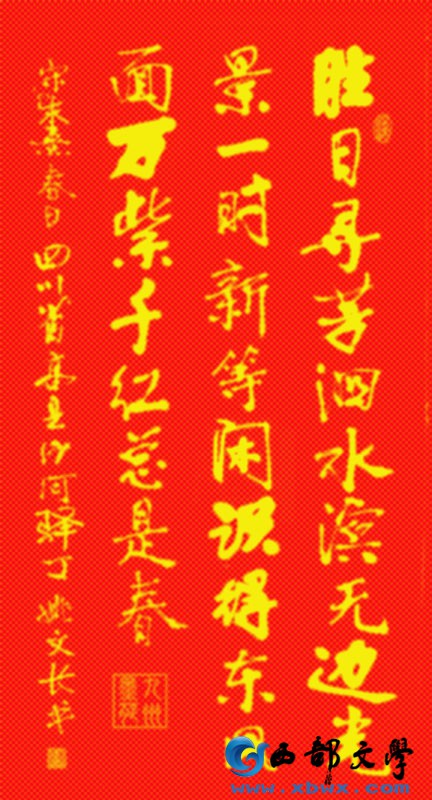 胜日寻芳泗水滨无边光
景一时新等闲识得东风
面万紫千红总是春
宋朱熹春日四川沙河驿丁姚文长书
西部文学
www.xbwx.com